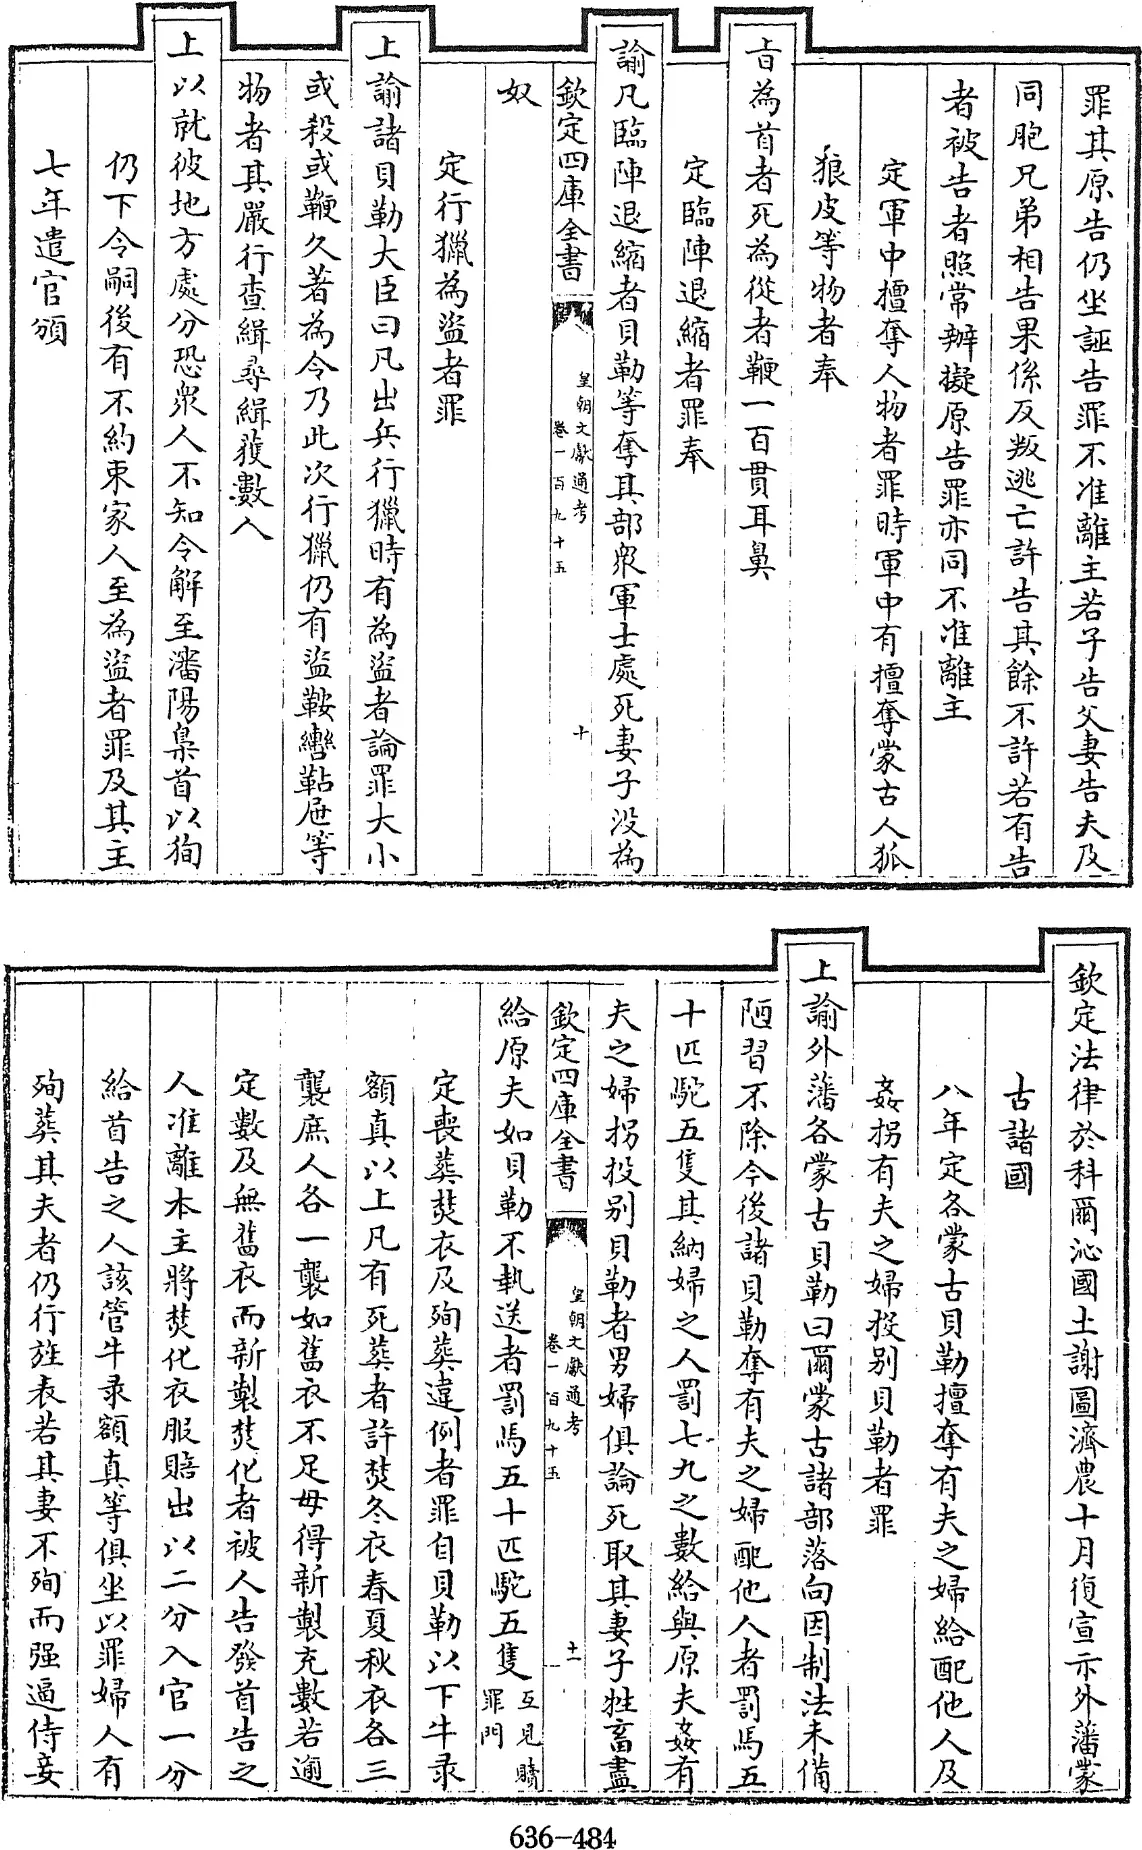 罪其原告仍坐誣告罪不准離主若子告父妻告夫及
同胞兄弟相告果係反叛逃亡許告其餘不許若有告
者被告者照常辦擬原告罪亦同不准離主
定軍中擅奪人物者罪時軍中有擅奪蒙古人狐
狼皮等物者奉
㫖為首者死為從者鞭一百貫耳鼻
定臨陣退縮者罪奉
諭凡臨陣退縮者貝勒等奪其部衆軍士處死妻子没為
欽定四庫全書
皇朝文獻通考
卷一百九十五
十
奴
定行獵為盜者罪
上諭諸貝勒大臣曰凡出兵行獵時有為盜者論罪大小
或殺或鞭久著為令乃此次行獵仍有盜鞍轡韂屉等
物者其嚴行查緝尋緝獲數人
上以就彼地方處分恐衆人不知令解至瀋陽梟首以狥
仍下令嗣後有不約束家人至為盜者罪及其主
七年遣官頒
欽定法律於科爾沁國土謝圖濟農十月復宣示外藩蒙
古諸國
八年定各蒙古貝勒擅奪有夫之婦給配他人及
姦拐有夫之婦投别貝勒者罪
上諭外藩各蒙古貝勒曰爾蒙古諸部落向因制法未備
陋習不除今後諸貝勒奪有夫之婦配他人者罰馬五
十匹駝五隻其納婦之人罰七九之數給與原夫姦有
夫之婦拐投别貝勒者男婦俱論死取其妻子牲畜盡
欽定四庫全書
皇朝文獻通考
卷一百九十五
十一
給原夫如貝勒不執送者罰馬五十匹駝五隻互見贖
罪門
定喪葬焚衣及殉葬違例者罪自貝勒以下牛录
額真以上凡有死葬者許焚冬衣春夏秋衣各三
襲庶人各一襲如舊衣不足毋得新製充數若逾
定數及無舊衣而新製焚化者被人告發首告之
人准離本主將焚化衣服賠出以二分入官一分
給首告之人該管牛录額真等俱坐以罪婦人有
殉葬其夫者仍行旌表若其妻不殉而强逼侍妾
636-484